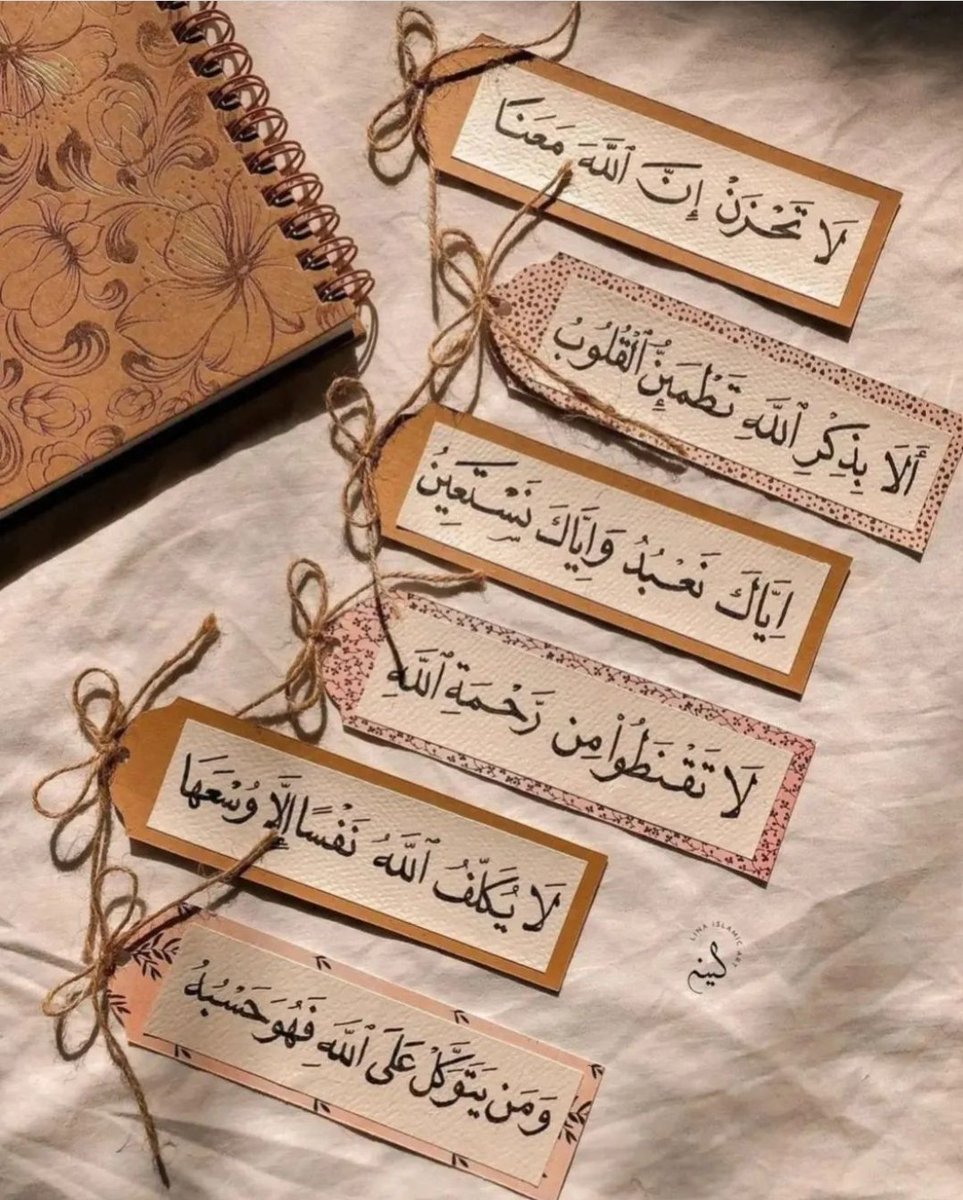 لَا تَحْزَنْ إِنَّ ٱللَّهَ مَعَنَا
أَلَا بِذِكْرِ ٱللَّهِ تَطْمَئِنُّ ٱلْقُلُوبُ
اِيَّاكَ نَعْبُدُ وَاِيَّاكَ نَسْتَعِينُ
لَا تَقْنَطُوا۟ مِن رَّحْمَةِ ٱللَّهِ
لَا يُكَلِّفُ ٱللَّهُ نَفْسًا إِلَّا وُسْعَهَا
وَمَن يَتَوَكَّلْ عَلَى ٱللَّهِ فَهُوَ حَسْبُهُ
LINA ISLAMIC ART
لينه